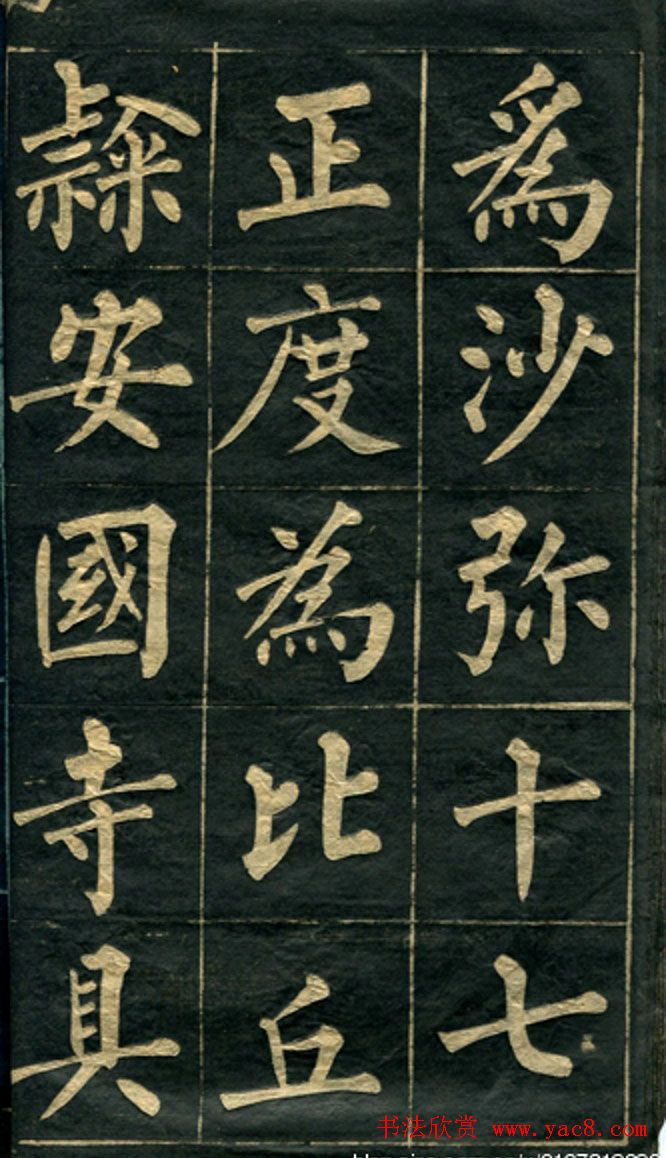 為沙弥十七
正度為比丘
隸安國寺具
书法欣赏 www.yac8.com